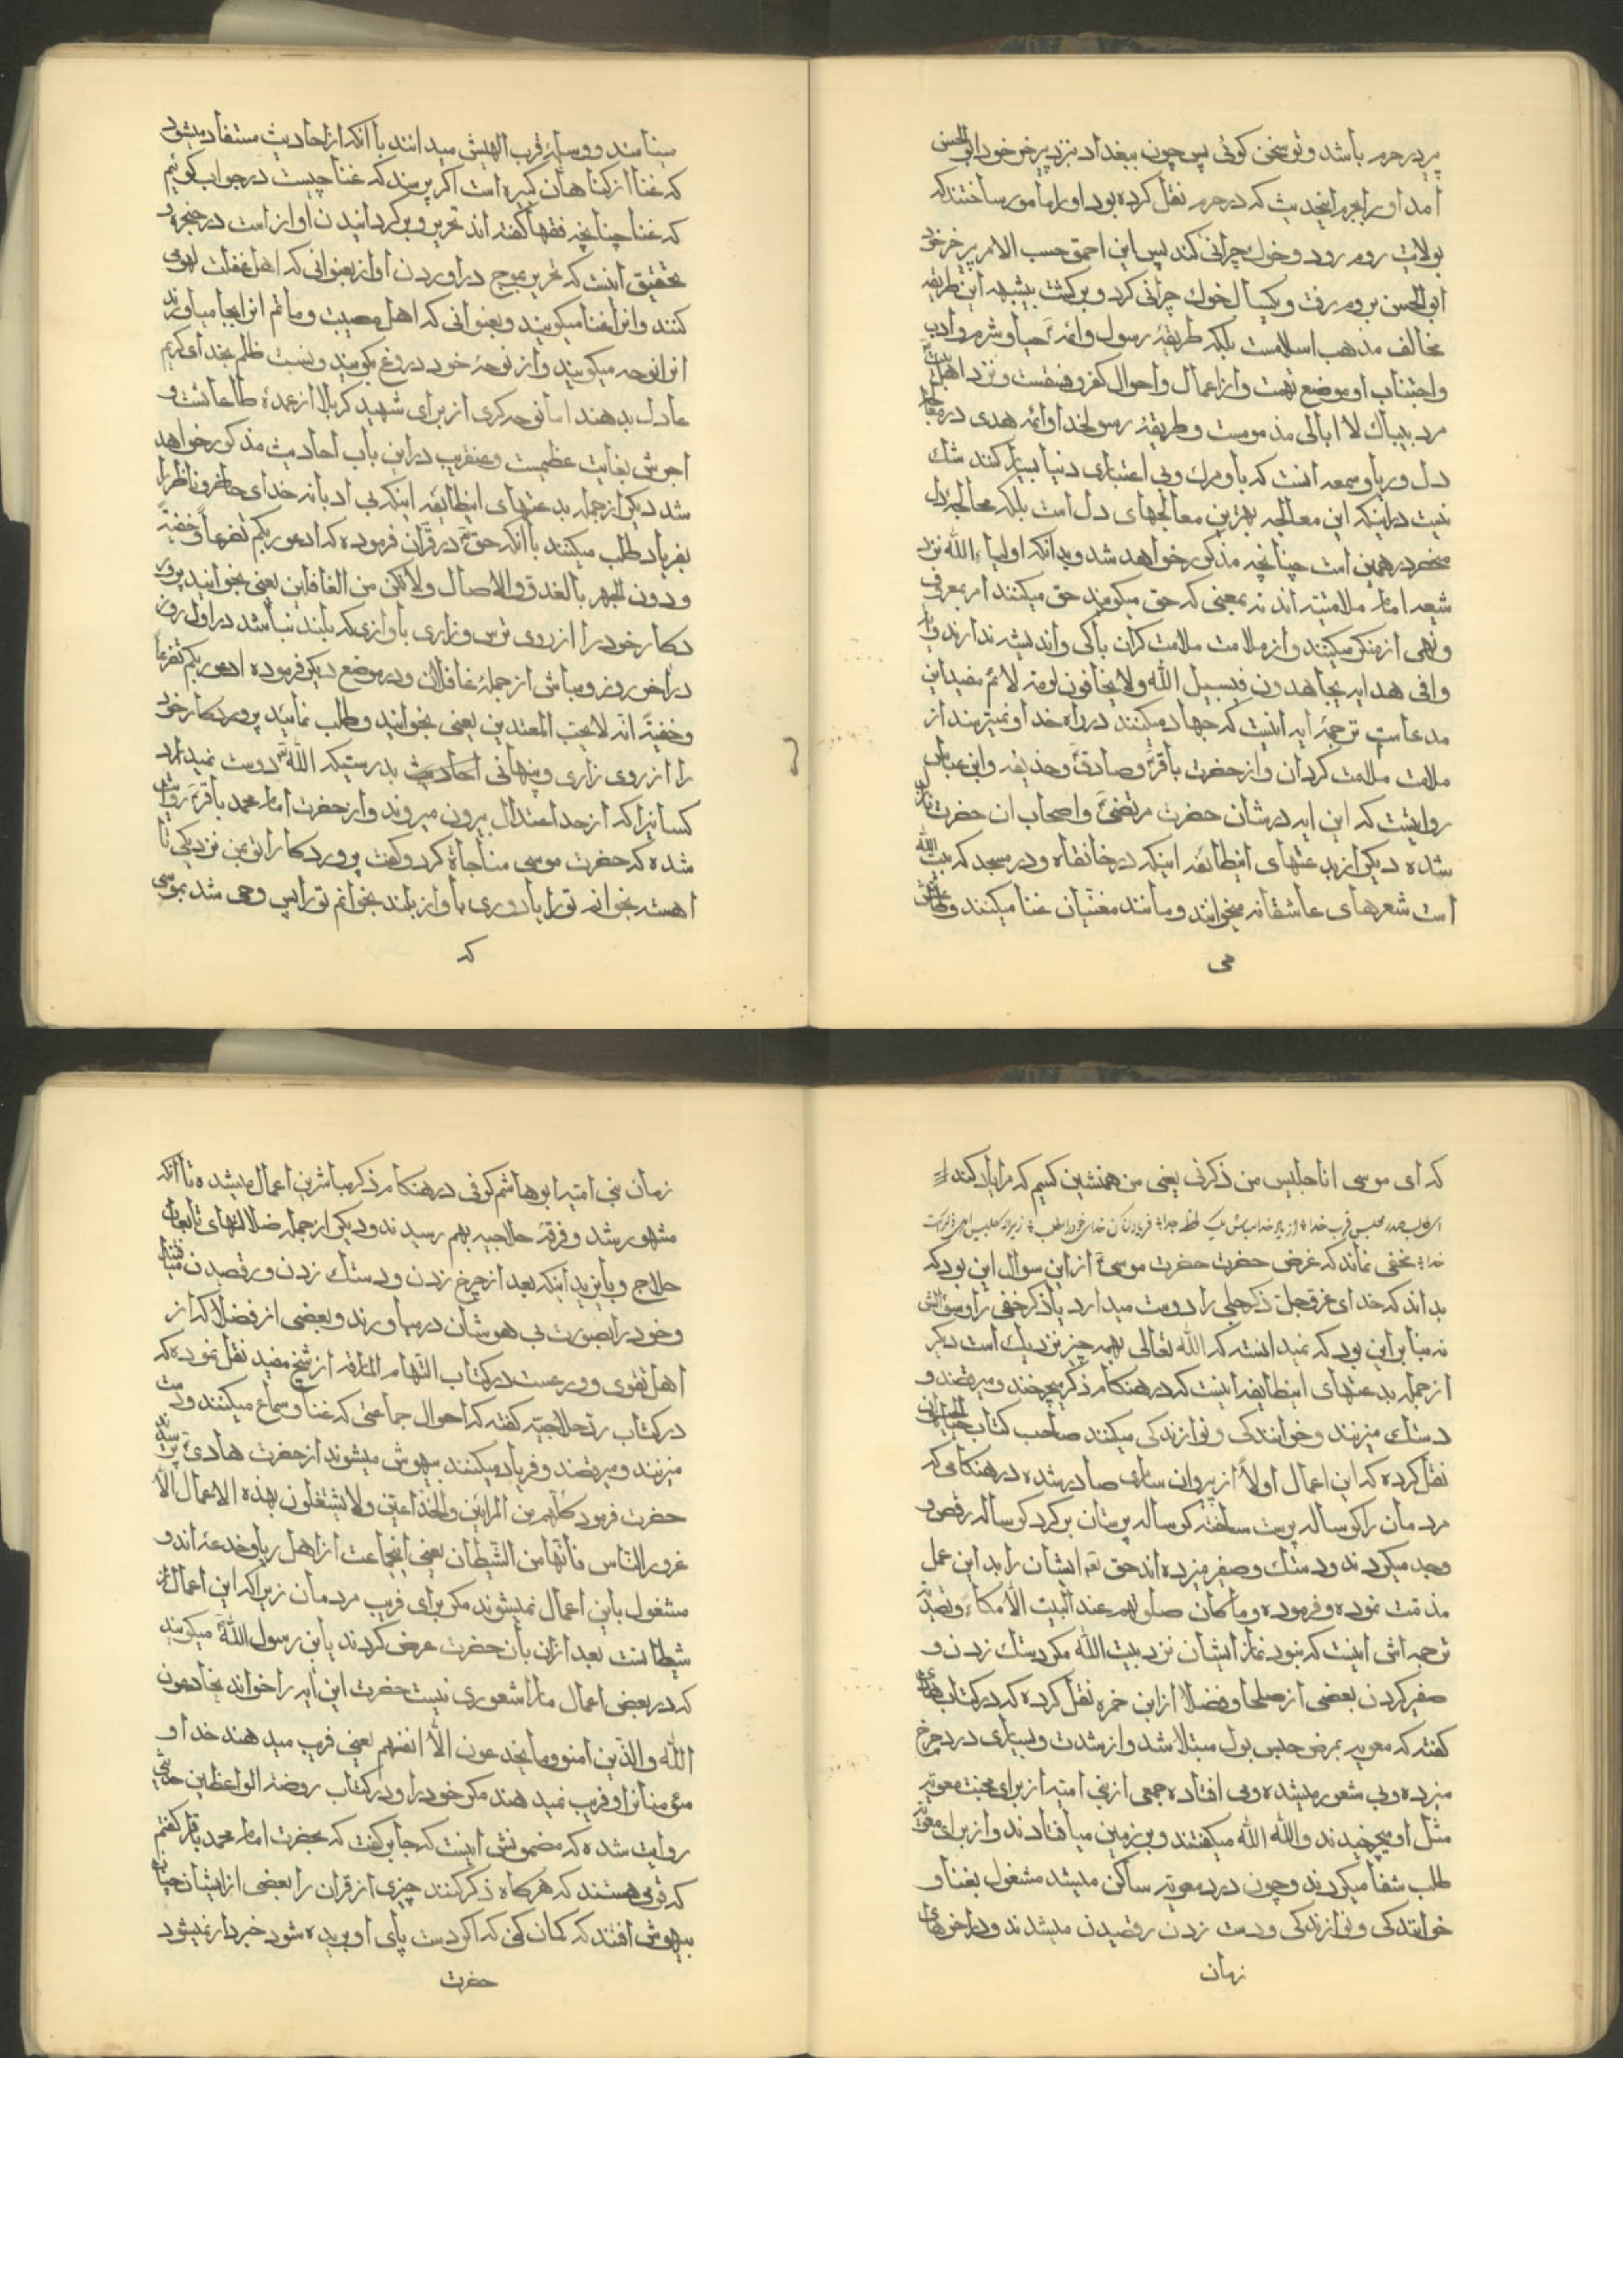 پر در حرم باشد و تو سخن کوئی پس چون ببغداد نزد پیر خر خود ابو الحسن
امد او را بجرم اینحدیث که در حرم نقل کرده بود او را مامور ساختند که
بولایت روم رود و خوك چرانی کند پس این احمق حسب الامر پیر خر خود
ابو الحسن بروم رفت و یکسال خوك چرانی کرد و برکشت بیشبهه این طریقه
مخالف مذهب اسلامست بلکه طریقهٔ رسول و ائمه ع حیا و شرم و ادب
و اجتناب او موضع تهمت و از اعمال و احوال کفر و فسقست و نزد اهل
مرد بیباك لا ابالی مذمومست و طریقهٔ رسولخدا و ائمه هدی در معالجه
دل و ریا و سمعه انست که یاد مرك و بی اعتباری دنیا بسیار کنند شك
نیست در اینکه این معالجه بهترین معالجهای دل است بلکه معالجهٔ دل
منحصر در همین است چنانچه مذکور خواهد شد و بدانکه اولیاء الله نزد
شیعه امامیه ملامتیه اند نه بمعنی که حق میکویند حق میکنند امر بمعروف
و نهی از منکر میکنند و از ملامت ملامت کران باکی و اندیشه ندارند و
وافی هدایه یجاهدون فی سبیل الله و لا یخافون لومة لائم مفید این
مدعاست ترجمهٔ ایه اینست که جهاد میکنند در راه خدا و نمیترسند از
ملامت ملامت کردان و از حضرت باقر ع و صادق ع و حذیفه و ابن عباس
روایتست که این ایه در شان حضرت مرتضی ع و اصحاب ان حضرت نازل
شده دیکر از بدعتهای اینطائفه اینکه در خانقاه و در مسجد که بیت الله
است شعرهای عاشقانه میخوانند و مانند مغنیان غنا میکنند و طاعتش
می
مینامند و وسیلهٔ قرب الهیش میدانند با انکه از احادیث مستفاد میشود
که غنا از کناهان کبیره است اکر پرسند که غنا چیست در جواب کوئیم
که غنا چنانچه فقها کفته اند تحریر و برکردانیدن اواز است در حنجره و
تحقیق اینست که تحریر بموج در اوردن اواز بعنوانی که اهل غفلت لهو می
کنند و انرا غنا میکویند و بعنوانی که اهل مصیبت و ماتم انرا بجا میاورند
انرا نوحه میکویند و از نوحهٔ خود دروغ بکویند و نسبت ظلم بخدای کریم
عادل بدهند اما نوحه کری از برای شهید کربلا از عمدهٔ طاعاتست و
اجرش بغایت عظیمست و عنقریب در این باب احادیث مذکور خواهد
شد دیکر از جمله بدعتهای اینطائفه اینکه بی ادبانه خدای حاضر و ناظر را
بفریاد طلب میکنند با انکه حق تع در قرآن فرموده که ادعو ربکم تضرعاً و خفیةً
و دون الجهر بالغدو و الاصال و لا تکن من الغافلین یعنی بخوانید پرورد
دکار خود را از روی ترس و زاری با وازی که بلند نباشد در اول روز
در اخر روز و مباش از جملهٔ غافلان و در موضع دیکر فرموده ادعو ربکم تضرعاً
و خفیةً انه لا یحب المعتدین یعنی بخوانید و طلب نمائید پروردکار خود
را از روی زاری و پنهانی احادیث بدرستیکه الله تع دوست نمیدارد
کسانیرا که از حد اعتدال بیرون میروند و از حضرت امام محمد باقر ع روایت
شده که حضرت موسی مناجاة کرد و کفت پروردکارا تو بمن نزدیکی تا
اهسته بخوانم تو را یا دوری با واز بلند بخوانم تو را پس وحی شد بموسی
که
که ای موسی انا جلیس من ذکرنی یعنی من همنشین کسیم که مرا یاد کند
خدا مخفی نماند که غرض حضرت حضرت موسی ع از این سوال این بود که
بداند که خدای عزوجل ذکر جلی را دوست میدارد یا ذکر خفی را و سؤالش
نه بنا بر این بود که نمیدانسته که الله تعالی بهمه چیز نزدیك است دیکر
از جمله بدعتهای اینطایفه اینست که در هنکام ذکر میچرخند و میرقصند و
دستك میزنند و خوانندکی و نوازندکی میکنند صاحب کتاب حیات الحیوان
نقل کرده که این اعمال اولاً از پیروان سامری صادر شده در هنکامی که
مردمان را کوساله پرست ساخته کوساله پرستان بر کرد کوساله رقص و
وجد میکردند و دستك و صفیر میزده اند حق تع ایشان را بد این عمل
مذمت نموده و فرموده و ما کان صلوتهم عند البیت الا مکاءً و تصدیه
ترجمه اش اینست که نبود نماز ایشان نزد بیت الله مکر دستك زدن و
صفیر کردن بعضی از صلحا و فضلا از ابن حمزه نقل کرده که در کتاب
کفته که معویه بمرض حبس بول مبتلا شد و از شدت و بسیاری درد چرخ
میزده و بی شعور میشده و می افتاده جمعی از بنی امیه از برای محبت معویه
مثل او میچرخیدند و الله الله میکفتند و بر زمین میافتادند و از برای معویه
طلب شفا میکردند و چون درد معویه ساکن میشد مشغول بغنا و
خوانندکی و نوازندکی و دست زدن رقصیدن میشدند و در اخرهای
زمان
زمان بنی امیه ابو هاشم کوفی در هنکام ذکر مباشر این اعمال میشده تا انکه
مشهور شد و فرقهٔ حلاجیه بهم رسیدند و دیکر از جمله ضلالتهای تابعان
حلاج و بایزید اینکه بعد از چرخ زدن و دستك زدن و رقصیدن میافتند
و خود را بصورت بی هوشان در میاورند و بعضی از فضلا که از
اهل تقوی و ورعست در کتاب السهام المارقه از شیخ مفید نقل نموده که
در کتاب رد حلاجیه کفته که احوال جماعتی که غنا و سماع میکنند و دست
میزنند و میرقصند و فریاد میکنند بیهوش میشوند از حضرت هادی ع پرسیدند
حضرت فرمود کلهم من المرائین و الخداعین و لا یشتغلون بهذه الاعمال الا
غرور الناس فانها من الشیطان یعنی اینجماعت از اهل ریا و خدعه اند و
مشغول باین اعمال نمیشوند مکر برای فریب مردمان زیرا که این اعمال از
شیطانست بعد از ان بان حضرت عرض کردند یا بن رسول الله ص میکویند
که در بعض اعمال ما را شعوری نیست حضرت این ایه را خواند یخادعون
الله و الذین امنو و ما یخدعون الا انفسهم یعنی فریب میدهند خدا و
مؤمنانرا و فریب نمیدهند مکر خود را و در کتاب روضة الواعظین حدیثی
روایت شده که مضمونش اینست که جابر کفت که بحضرت امام محمد باقر کفتم
که قومی هستند که هرکاه ذکر کنند چیزی از قران را بعضی از ایشان چنان
بیهوش افتند که کمان کنی که اکر دست پای او بریده شود خبردار نمیشود
حضرت